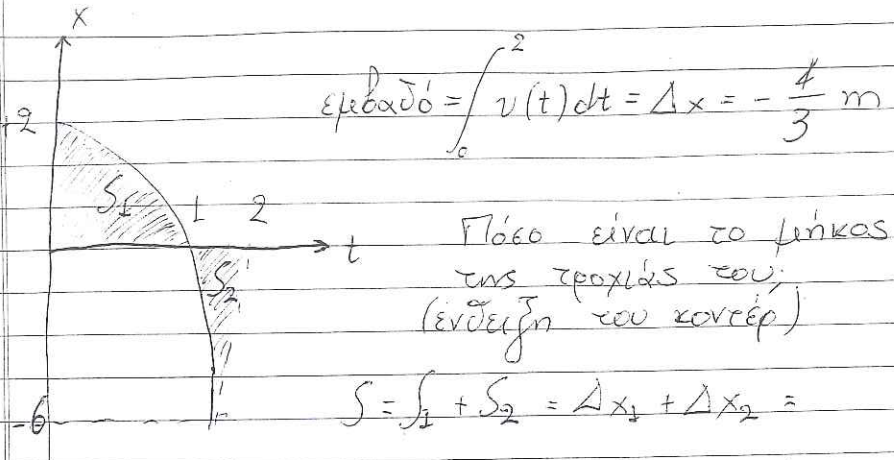 x
2
εμβαδό = ∫₀² v(t) dt = Δx = - 4/3 m
S₁ 1 2
t
Πόσο είναι το μήκος
S₂ της τροχιάς του;
(ένδειξη του κοντέρ)
-6
S = S₁ + S₂ = Δx₁ + Δx₂ =